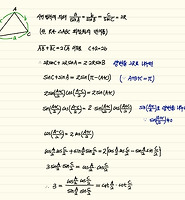 A
사인법칙에 의해 a/sinA = b/sinB = c/sinC = 2R
(단, R은 △ABC 외접원의 반지름)
AB + BC = 2CA 이므로 c+a=2b
2RsinC + 2RsinA = 2·2RsinB
sinC + sinA = 2sin(π-(A+C)) (∵ A+B+C=π)
2sin((A+C)/2)cos((A-C)/2) = 2sin(A+C)
2sin((A+C)/2)cos((A-C)/2) = 2·2sin((A+C)/2)cos((A+C)/2)
cos((A-C)/2) = 2cos((A+C)/2)
cos A/2 cos C/2 + sin A/2 sin C/2 = 2(cos A/2 cos C/2 - sin A/2 sin C/2)
3 sin A/2 sin C/2 = cos A/2 cos C/2
∴ 3 = (cos A/2 cos C/2)/(sin A/2 sin C/2) = cot A/2 · cot C/2